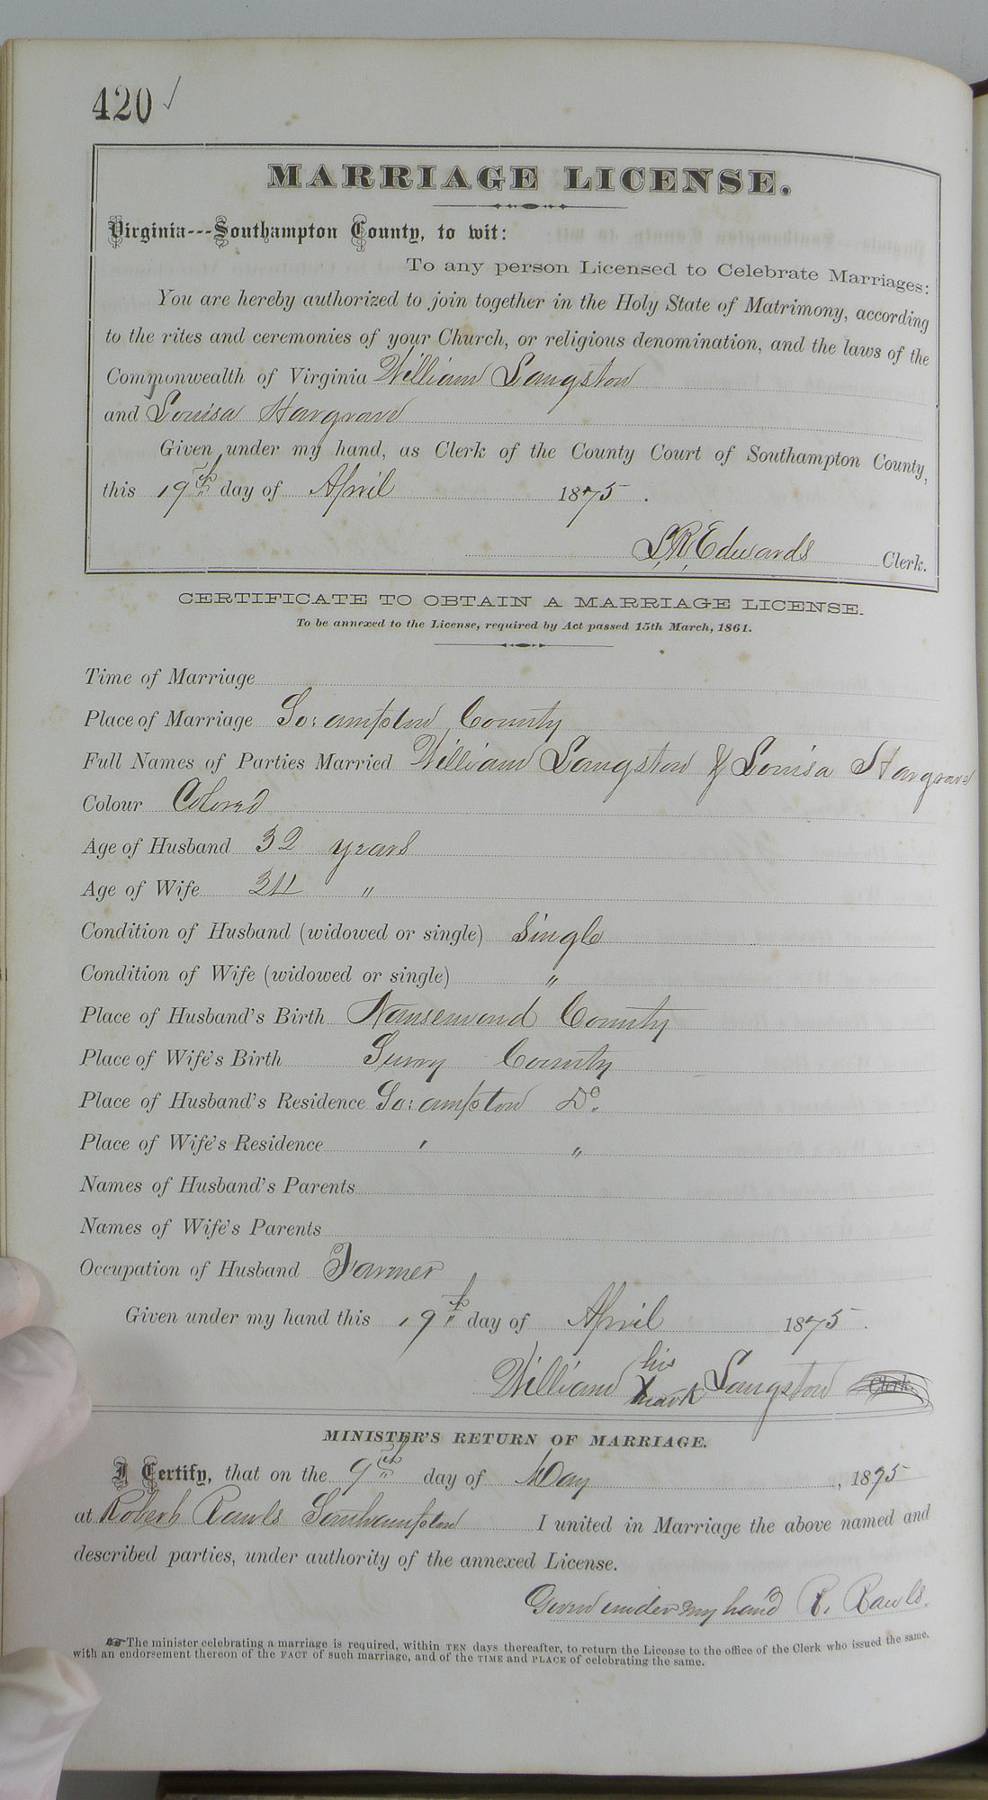 420 ✓
MARRIAGE LICENSE.
Virginia---Southampton County, to wit:
To any person Licensed to Celebrate Marriages:
You are hereby authorized to join together in the Holy State of Matrimony, according
to the rites and ceremonies of your Church, or religious denomination, and the laws of the
Commonwealth of Virginia William Langston
and Louisa Hargrave
Given under my hand, as Clerk of the County Court of Southampton County,
this 19th day of April 1875.
L. R. Edwards Clerk.
CERTIFICATE TO OBTAIN A MARRIAGE LICENSE.
To be annexed to the License, required by Act passed 15th March, 1861.
Time of Marriage
Place of Marriage So:ampton County
Full Names of Parties Married William Langston & Louisa Hargrave
Colour Colored
Age of Husband 32 years
Age of Wife 34 "
Condition of Husband (widowed or single) Single
Condition of Wife (widowed or single) "
Place of Husband's Birth Nansemond County
Place of Wife's Birth Surry County
Place of Husband's Residence So:ampton Do.
Place of Wife's Residence " "
Names of Husband's Parents
Names of Wife's Parents
Occupation of Husband Farmer
Given under my hand this 19th day of April 1875.
William his X mark Langston Clerk.
MINISTER'S RETURN OF MARRIAGE.
I Certify, that on the 9th day of May, 1875
at Robert Rawls Southampton I united in Marriage the above named and
described parties, under authority of the annexed License.
Given under my hand R. Rawls.
☞ The minister celebrating a marriage is required, within TEN days thereafter, to return the License to the office of the Clerk who issued the same,
with an endorsement thereon of the FACT of such marriage, and of the TIME and PLACE of celebrating the same.